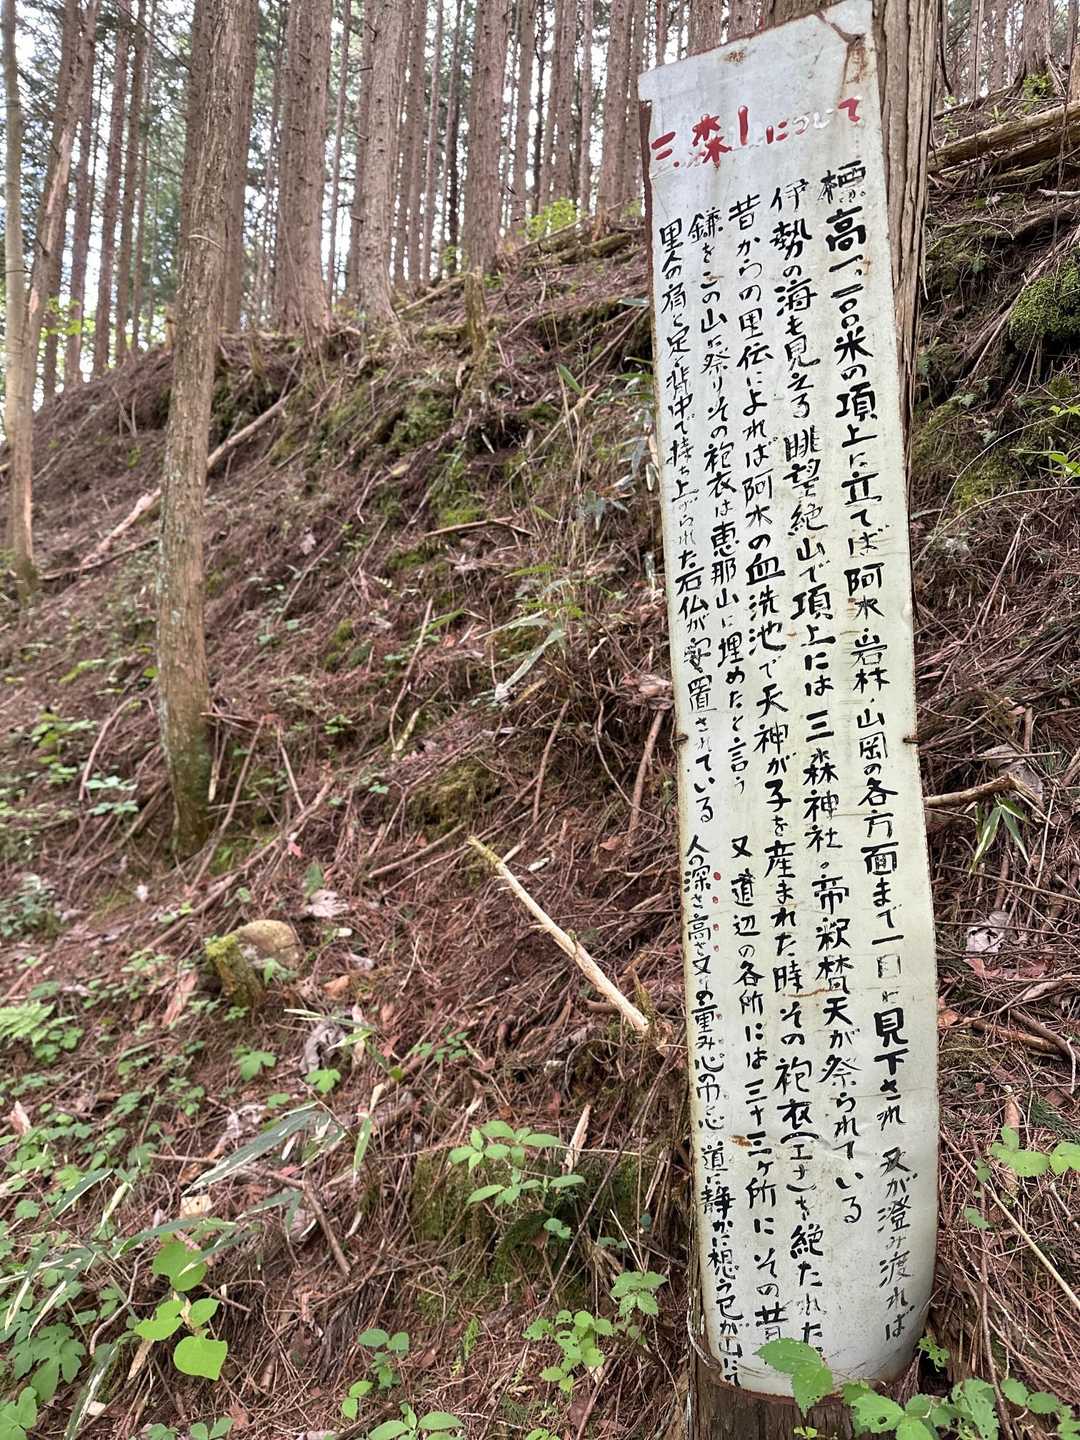 三森山について
標高一、一〇〇米の項上に立てば阿木・岩村・山岡の各方面まで一目に見下され 又が澄み渡れば
伊勢の海も見える眺望絶山で項上には三森神社。帝釈梵天が祭られている
昔からの里伝によれば阿木の血洗池で天神が子を産まれた時その袍衣(エナ)を絶たれた
鎌をこの山に祭りその袍衣は恵那山に埋めたと言う 又道辺の各所には三十三ヶ所にその昔
里人の肩と足と背中で持ち上げられた石仏が安置されている 人の深さ高さ又の重み心の 道に静かに想う己が山にて